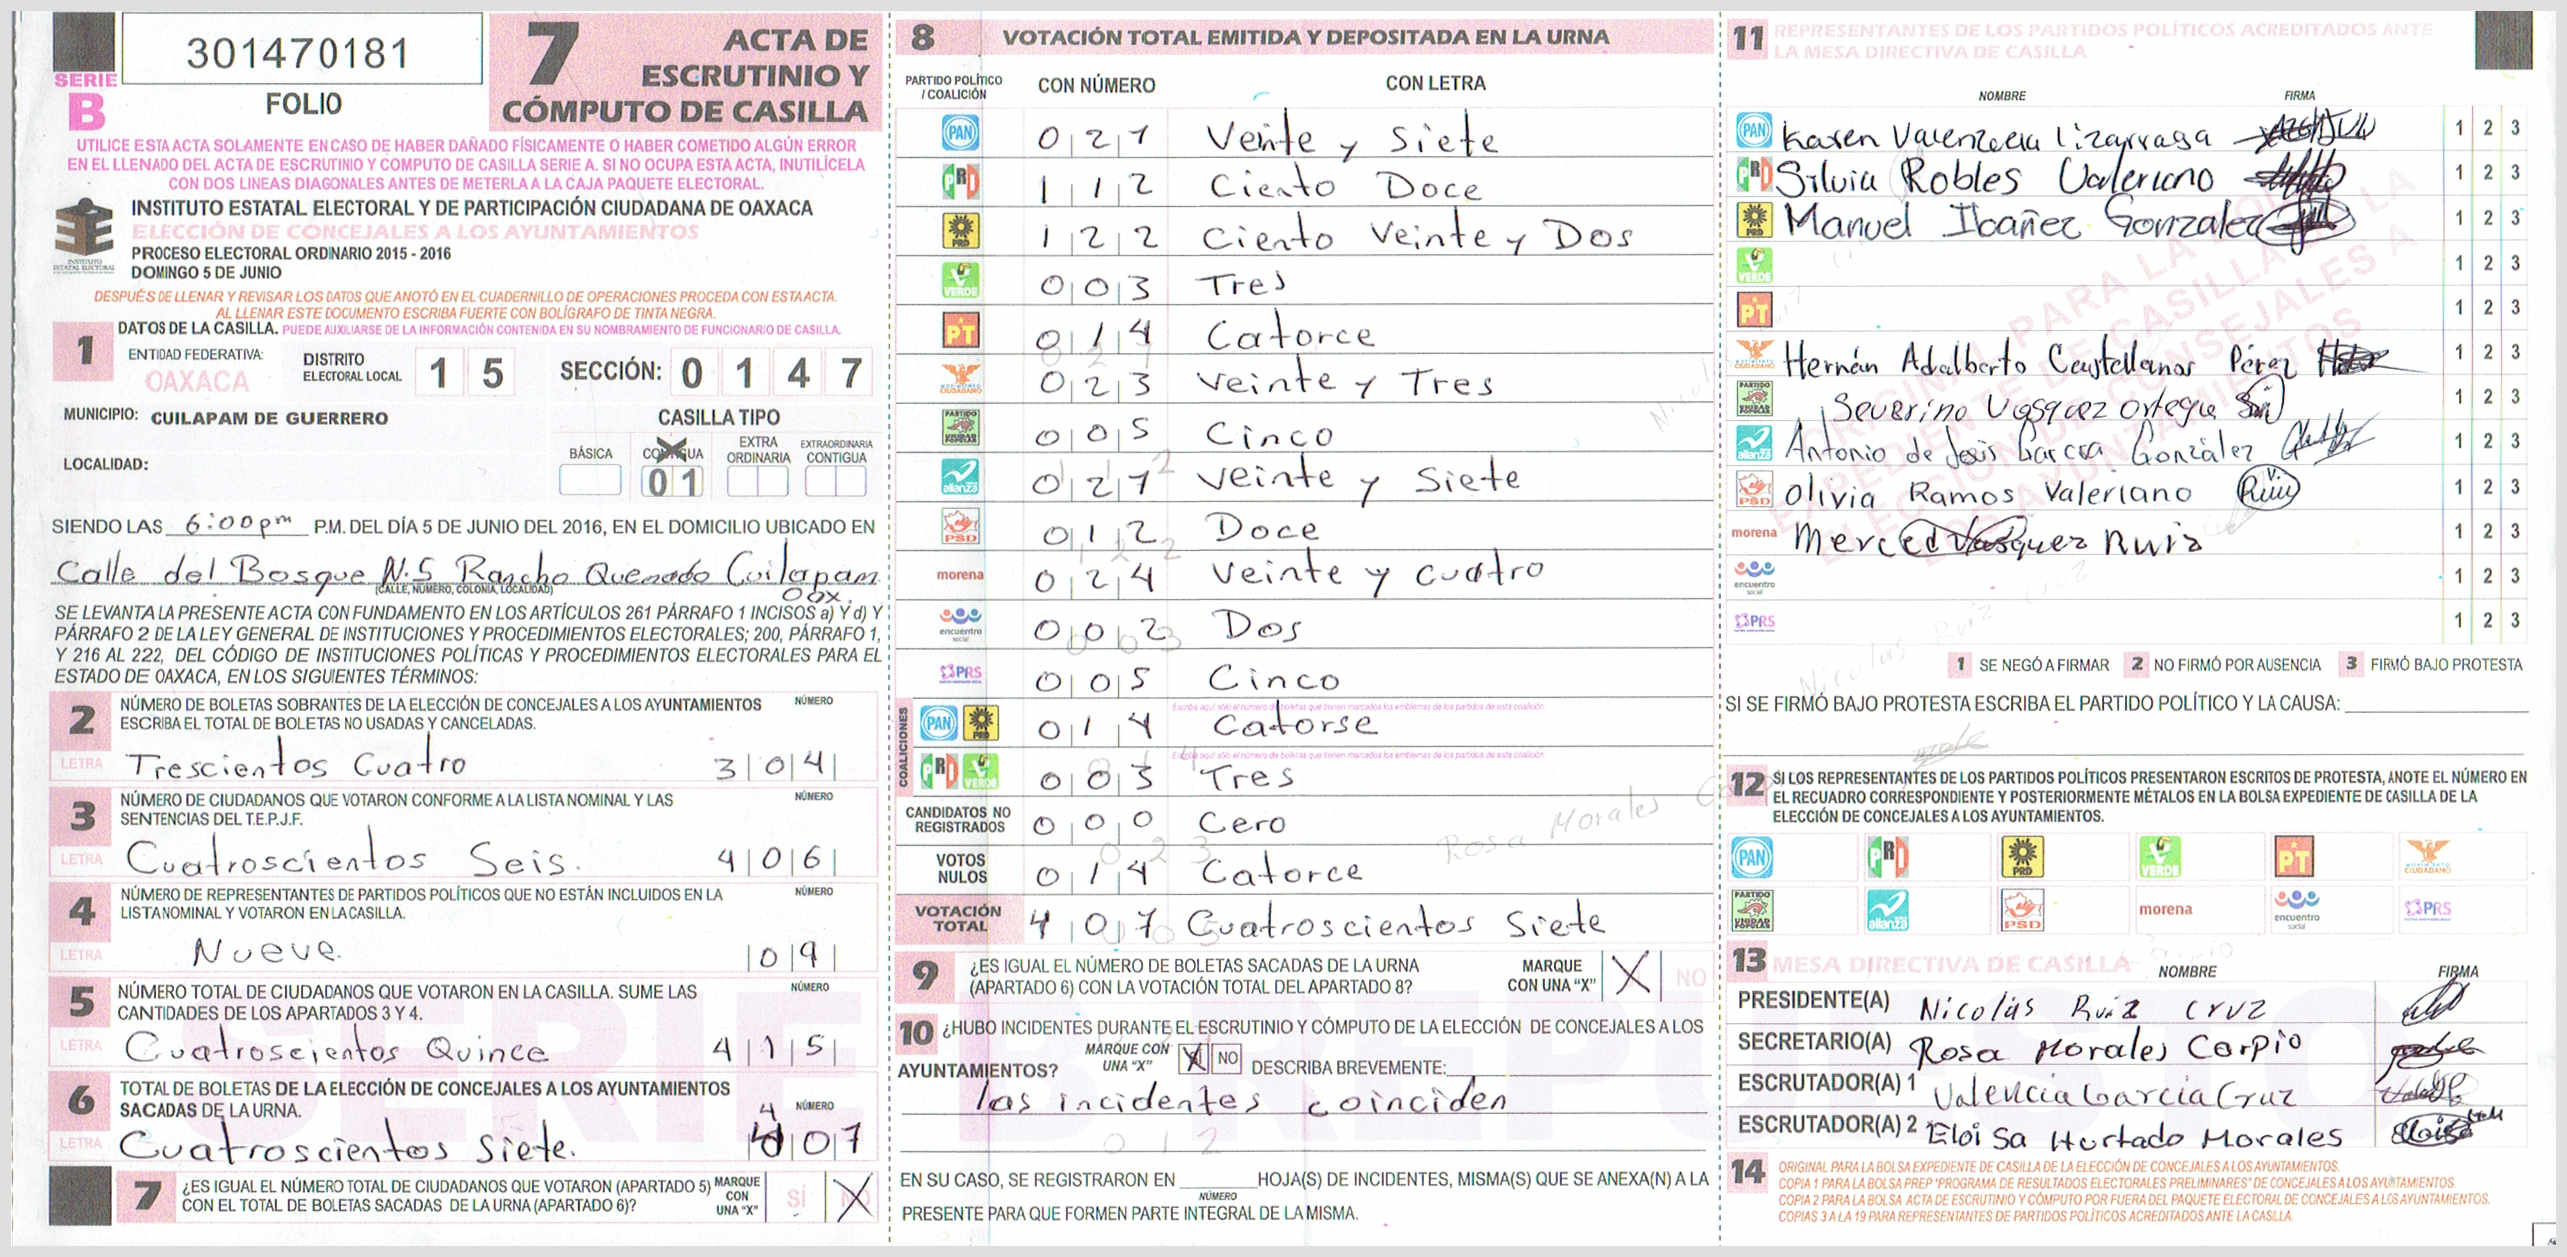 301470181
SERIE
B
FOLIO
7 ACTA DE
ESCRUTINIO Y
CÓMPUTO DE CASILLA
UTILICE ESTA ACTA SOLAMENTE EN CASO DE HABER DAÑADO FÍSICAMENTE O HABER COMETIDO ALGÚN ERROR
EN EL LLENADO DEL ACTA DE ESCRUTINIO Y COMPUTO DE CASILLA SERIE A. SI NO OCUPA ESTA ACTA, INUTILÍCELA
CON DOS LINEAS DIAGONALES ANTES DE METERLA A LA CAJA PAQUETE ELECTORAL.
INSTITUTO ESTATAL ELECTORAL Y DE PARTICIPACIÓN CIUDADANA DE OAXACA
ELECCIÓN DE CONCEJALES A LOS AYUNTAMIENTOS
PROCESO ELECTORAL ORDINARIO 2015 - 2016
DOMINGO 5 DE JUNIO
DESPUÉS DE LLENAR Y REVISAR LOS DATOS QUE ANOTÓ EN EL CUADERNILLO DE OPERACIONES PROCEDA CON ESTA ACTA.
AL LLENAR ESTE DOCUMENTO ESCRIBA FUERTE CON BOLÍGRAFO DE TINTA NEGRA.
1 DATOS DE LA CASILLA. PUEDE AUXILIARSE DE LA INFORMACIÓN CONTENIDA EN SU NOMBRAMIENTO DE FUNCIONARIO DE CASILLA.
ENTIDAD FEDERATIVA: OAXACA
DISTRITO ELECTORAL LOCAL 1 5
SECCIÓN: 0 1 4 7
MUNICIPIO: CUILAPAM DE GUERRERO
LOCALIDAD:
CASILLA TIPO
BÁSICA CONTIGUA EXTRA ORDINARIA EXTRAORDINARIA CONTIGUA
01
SIENDO LAS 6:00pm P.M. DEL DÍA 5 DE JUNIO DEL 2016, EN EL DOMICILIO UBICADO EN
Calle del Bosque N.S Rancho Quemado Cuilapam
Oax.
(CALLE, NÚMERO, COLONIA, LOCALIDAD)
SE LEVANTA LA PRESENTE ACTA CON FUNDAMENTO EN LOS ARTÍCULOS 261 PÁRRAFO 1 INCISOS a) Y d) Y
PÁRRAFO 2 DE LA LEY GENERAL DE INSTITUCIONES Y PROCEDIMIENTOS ELECTORALES; 200, PÁRRAFO 1,
Y 216 AL 222, DEL CÓDIGO DE INSTITUCIONES POLÍTICAS Y PROCEDIMIENTOS ELECTORALES PARA EL
ESTADO DE OAXACA, EN LOS SIGUIENTES TÉRMINOS:
2 NÚMERO DE BOLETAS SOBRANTES DE LA ELECCIÓN DE CONCEJALES A LOS AYUNTAMIENTOS NÚMERO
ESCRIBA EL TOTAL DE BOLETAS NO USADAS Y CANCELADAS.
LETRA Trescientos Cuatro 3|0|4|
3 NÚMERO DE CIUDADANOS QUE VOTARON CONFORME A LA LISTA NOMINAL Y LAS NÚMERO
SENTENCIAS DEL T.E.P.J.F.
LETRA Cuatroscientos Seis. 4|0|6|
4 NÚMERO DE REPRESENTANTES DE PARTIDOS POLÍTICOS QUE NO ESTÁN INCLUIDOS EN LA NÚMERO
LISTA NOMINAL Y VOTARON EN LA CASILLA.
LETRA Nueve. |0|9|
5 NÚMERO TOTAL DE CIUDADANOS QUE VOTARON EN LA CASILLA. SUME LAS NÚMERO
CANTIDADES DE LOS APARTADOS 3 Y 4.
LETRA Cuatroscientos Quince 4|1|5|
6 TOTAL DE BOLETAS DE LA ELECCIÓN DE CONCEJALES A LOS AYUNTAMIENTOS
SACADAS DE LA URNA. 4 NÚMERO
LETRA Cuatroscientos Siete. 4|0|7
7 ¿ES IGUAL EL NÚMERO TOTAL DE CIUDADANOS QUE VOTARON (APARTADO 5) MARQUE CON UNA "X" SÍ X
CON EL TOTAL DE BOLETAS SACADAS DE LA URNA (APARTADO 6)?
8 VOTACIÓN TOTAL EMITIDA Y DEPOSITADA EN LA URNA
PARTIDO POLÍTICO / COALICIÓN CON NÚMERO CON LETRA
PAN 0|2|7 Veinte y Siete
PRI 1|1|2 Ciento Doce
PRD 1|2|2 Ciento Veinte y Dos
VERDE 0|0|3 Tres
PT 0|1|4 Catorce
MOVIMIENTO CIUDADANO 0|2|3 Veinte y Tres
PARTIDO UNIDAD POPULAR 0|0|5 Cinco
alianza 0|2|7 Veinte y Siete
PSD 0|1|2 Doce
morena 0|2|4 Veinte y cuatro
encuentro social 0|0|2 Dos
PRS 0|0|5 Cinco
COALICIONES
Escriba aquí sólo el número de boletas que tienen marcados los emblemas de los partidos de esta coalición
PAN PRD 0|1|4 Catorse
Escriba aquí sólo el número de boletas que tienen marcados los emblemas de los partidos de esta coalición
PRI VERDE 0|0|3 Tres
CANDIDATOS NO REGISTRADOS 0|0|0 Cero
VOTOS NULOS 0|1|4 Catorce
VOTACIÓN TOTAL 4|0|7 Cuatroscientos Siete
9 ¿ES IGUAL EL NÚMERO DE BOLETAS SACADAS DE LA URNA MARQUE CON UNA "X" X NO
(APARTADO 6) CON LA VOTACIÓN TOTAL DEL APARTADO 8?
10 ¿HUBO INCIDENTES DURANTE EL ESCRUTINIO Y CÓMPUTO DE LA ELECCIÓN DE CONCEJALES A LOS
AYUNTAMIENTOS? MARQUE CON UNA "X" X NO DESCRIBA BREVEMENTE:
las incidentes coinciden
EN SU CASO, SE REGISTRARON EN ______ HOJA(S) DE INCIDENTES, MISMA(S) QUE SE ANEXA(N) A LA
NÚMERO
PRESENTE PARA QUE FORMEN PARTE INTEGRAL DE LA MISMA.
11 REPRESENTANTES DE LOS PARTIDOS POLÍTICOS ACREDITADOS ANTE
LA MESA DIRECTIVA DE CASILLA
NOMBRE FIRMA
PAN Karen Valenzuela Lizarraga 1 2 3
PRI Silvia Robles Valeriano 1 2 3
PRD Manuel Ibañez Gonzalez 1 2 3
VERDE 1 2 3
PT 1 2 3
MOVIMIENTO CIUDADANO Hernán Adalberto Castellanos Pérez 1 2 3
PARTIDO UNIDAD POPULAR Severino Vasquez Ortega 1 2 3
alianza Antonio de Jesús García González 1 2 3
PSD Olivia Ramos Valeriano 1 2 3
morena Merced Vasquez Ruiz 1 2 3
encuentro social 1 2 3
PRS 1 2 3
1 SE NEGÓ A FIRMAR 2 NO FIRMÓ POR AUSENCIA 3 FIRMÓ BAJO PROTESTA
SI SE FIRMÓ BAJO PROTESTA ESCRIBA EL PARTIDO POLÍTICO Y LA CAUSA:
12 SI LOS REPRESENTANTES DE LOS PARTIDOS POLÍTICOS PRESENTARON ESCRITOS DE PROTESTA, ANOTE EL NÚMERO EN
EL RECUADRO CORRESPONDIENTE Y POSTERIORMENTE MÉTALOS EN LA BOLSA EXPEDIENTE DE CASILLA DE LA
ELECCIÓN DE CONCEJALES A LOS AYUNTAMIENTOS.
PAN PRI PRD VERDE PT MOVIMIENTO CIUDADANO
PARTIDO UNIDAD POPULAR alianza PSD morena encuentro social PRS
13 MESA DIRECTIVA DE CASILLA NOMBRE FIRMA
PRESIDENTE(A) Nicolás Ruiz Cruz
SECRETARIO(A) Rosa Morales Carpio
ESCRUTADOR(A) 1 Valencia García Cruz
ESCRUTADOR(A) 2 Eloisa Hurtado Morales
14 ORIGINAL PARA LA BOLSA EXPEDIENTE DE CASILLA DE LA ELECCIÓN DE CONCEJALES A LOS AYUNTAMIENTOS.
COPIA 1 PARA LA BOLSA PREP "PROGRAMA DE RESULTADOS ELECTORALES PRELIMINARES" DE CONCEJALES A LOS AYUNTAMIENTOS
COPIA 2 PARA LA BOLSA ACTA DE ESCRUTINIO Y CÓMPUTO POR FUERA DEL PAQUETE ELECTORAL DE CONCEJALES A LOS AYUNTAMIENTOS.
COPIAS 3 A LA 19 PARA REPRESENTANTES DE PARTIDOS POLÍTICOS ACREDITADOS ANTE LA CASILLA